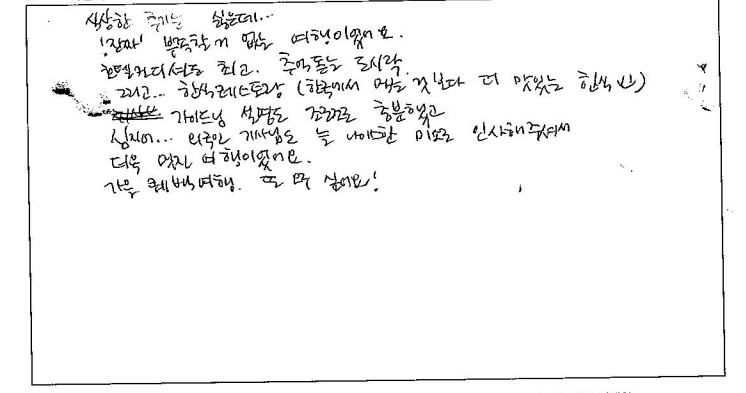 식상한 후기는 싫은데...
'진짜' 부족할거 없는 여행이었어요.
호텔컨디셔도 최고. 추억돋는 도시락.
그리고... 한식레스토랑 (한국에서 먹는 것보다 더 맛있는 한식)
가이드님 설명도 충분했고
심지어... 외국인 기사님도 늘 나이스한 미소로 인사해주셔서
더욱 멋진 여행이었어요.
가을 퀘벡여행. 또 오고 싶어요!